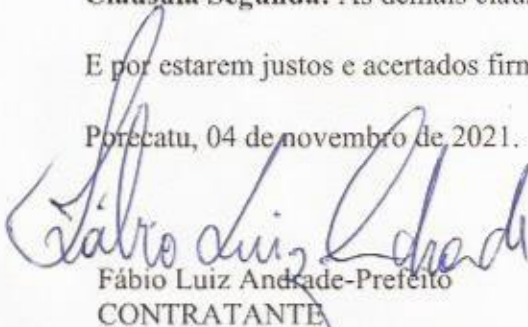 Cláusula Segunda: As demais cláus
E por estarem justos e acertados firm
Porecatu, 04 de novembro de 2021.
Fábio Luiz Andrad
Fábio Luiz Andrade-Prefeito
CONTRATANTE